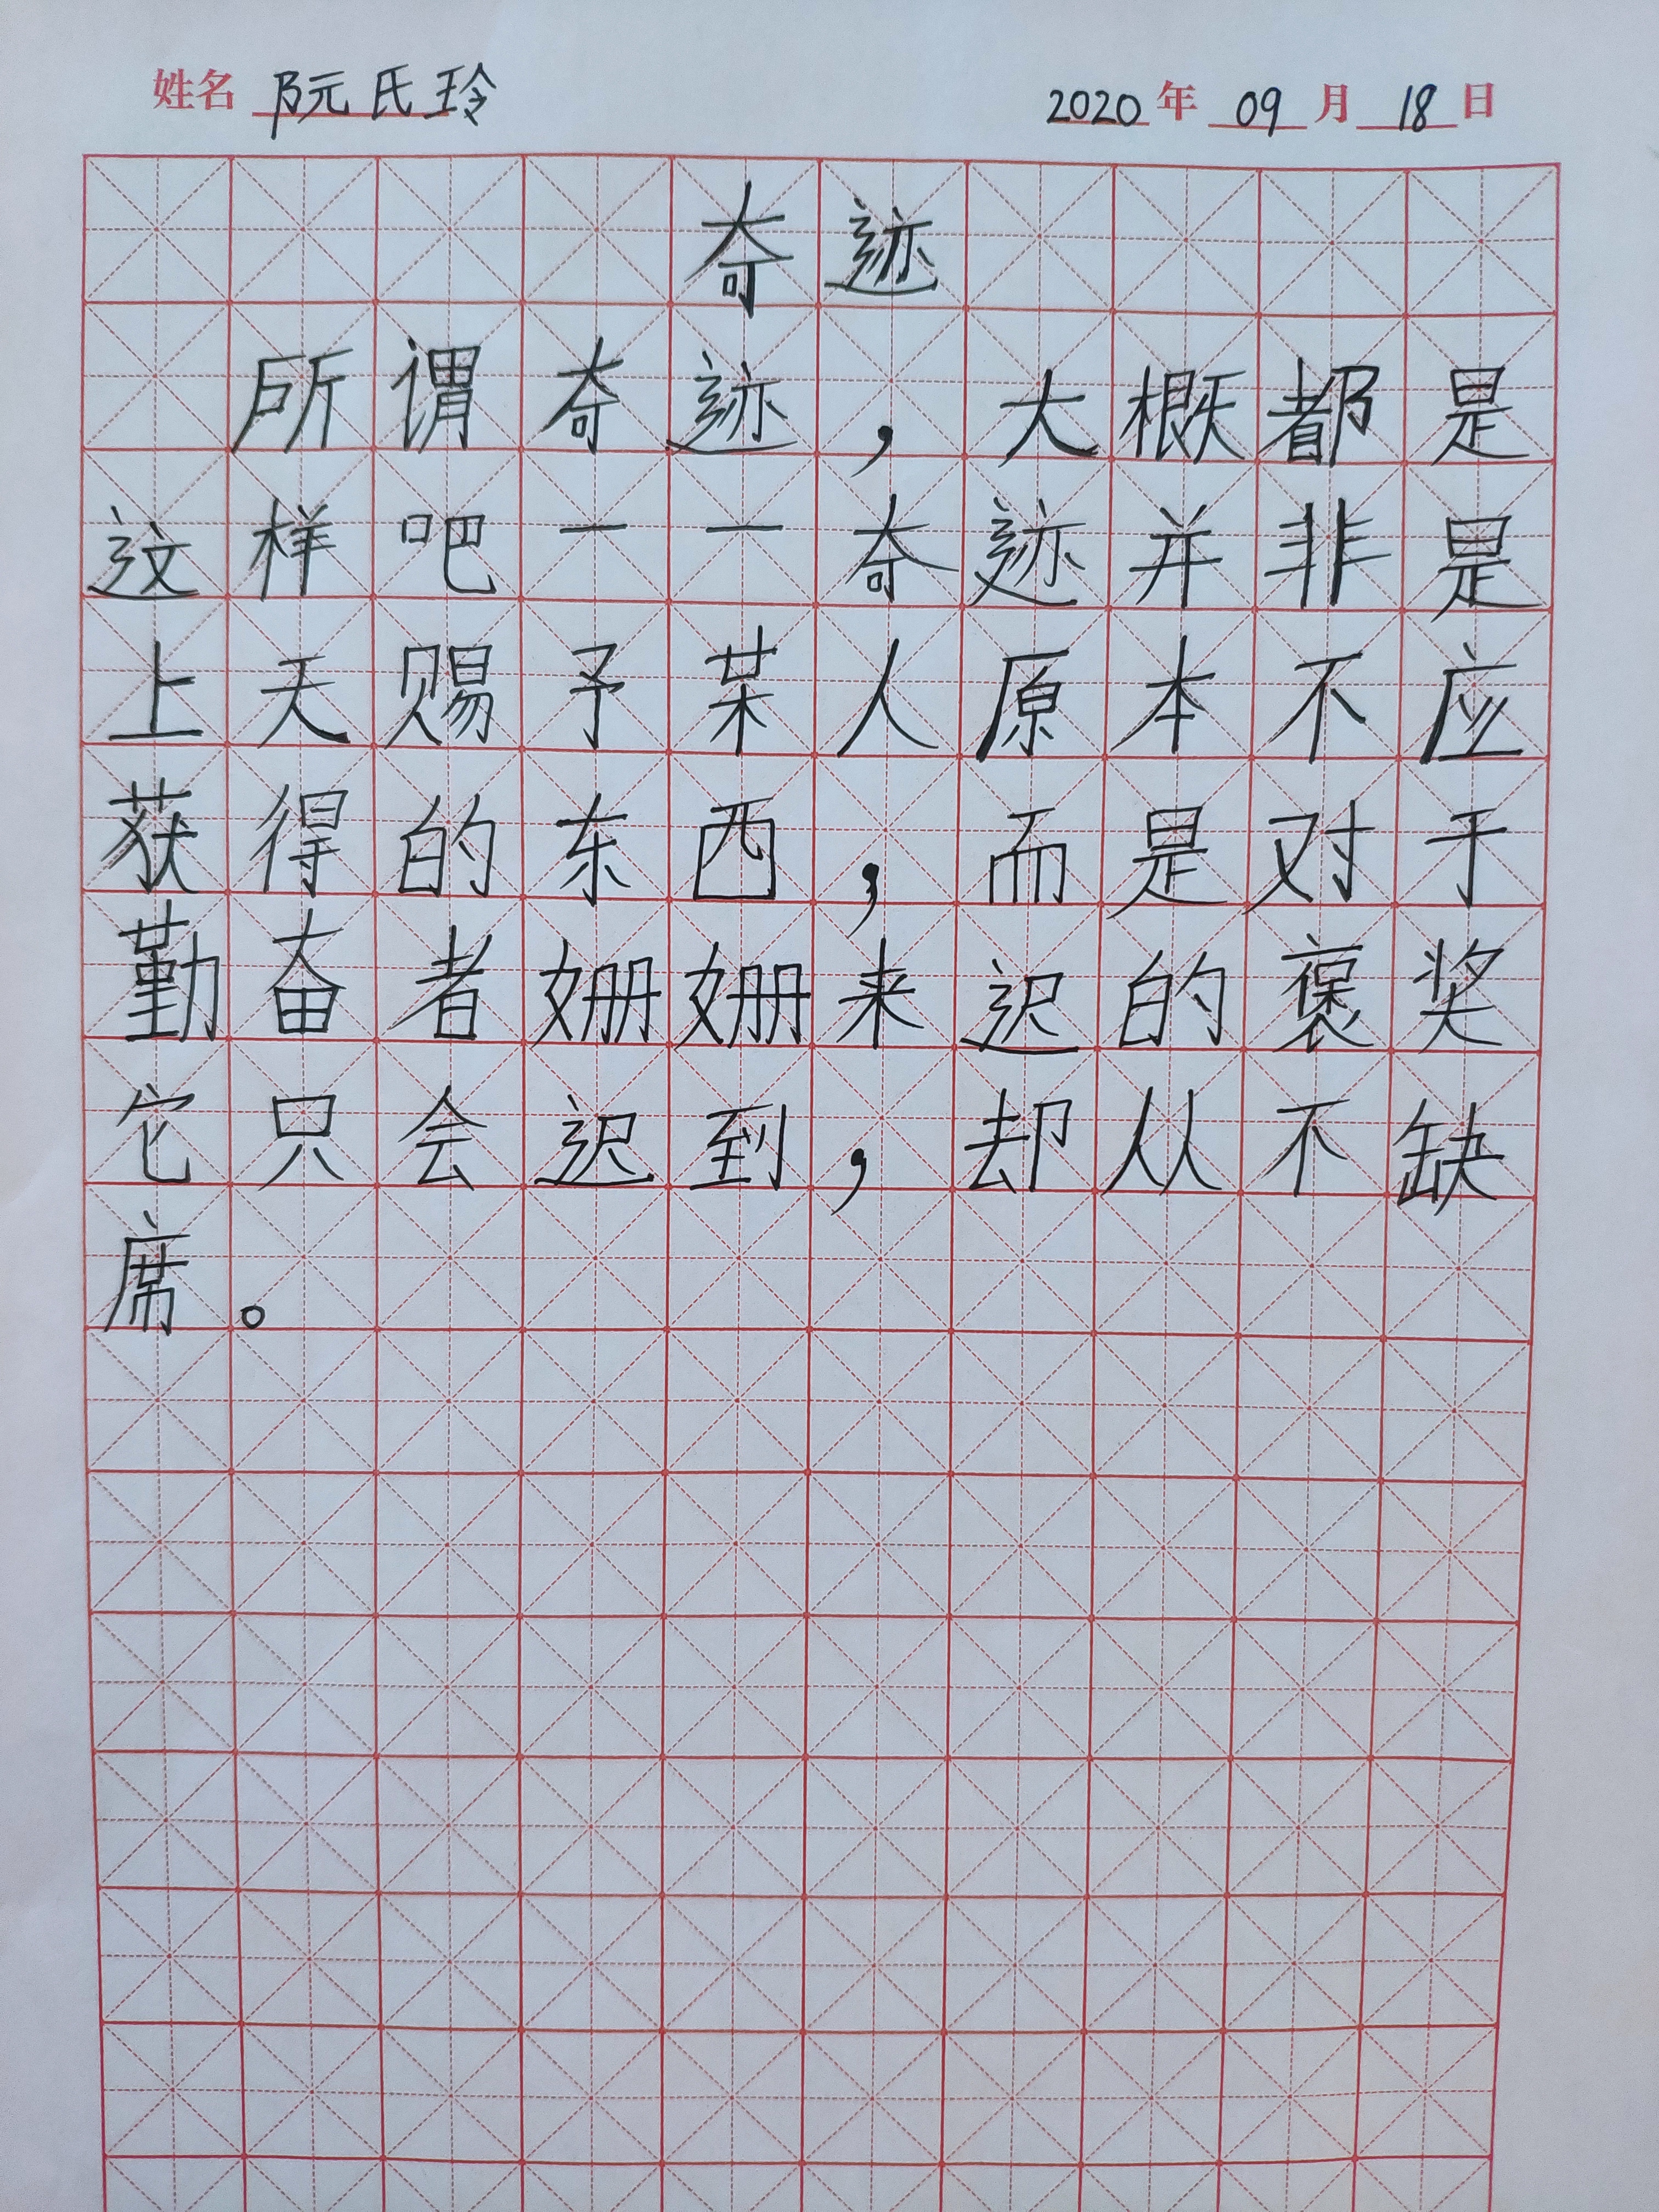 姓名 阮氏玲 2020年09月18日
奇迹
所谓奇迹，大概都是
这样吧一一奇迹并非是
上天赐予某人原本不应
获得的东西，而是对于
勤奋者姗姗来迟的褒奖
它只会迟到，却从不缺
席。